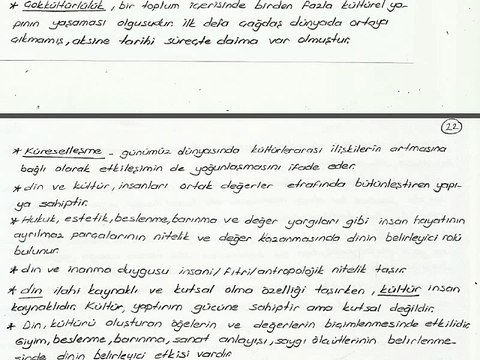 * Çokkültürlülük, bir toplum içerisinde birden fazla kültürel ya-
pının yaşaması olgusudur. ilk defa çağdaş dünyada ortaya
çıkmamış, aksine tarihi süreçte daima var olmuştur.
22
* Küreselleşme - günümüz dünyasında kültürlerarası ilişkilerin artmasına
bağlı olarak etkileşimin de yoğunlaşmasını ifade eder.
* din ve kültür, insanları ortak değerler etrafında bütünleştiren yapı-
ya sahiptir.
* Hukuk, estetik, beslenme, barınma ve değer yargıları gibi insan hayatının
ayrılmaz parçalarının nitelik ve değer kazanmasında dinin belirleyici rolü
bulunur.
* din ve inanma duygusu insani/fıtri/antropolojik nitelik taşır.
* din ilahi kaynaklı ve kutsal olma özelliği taşırken, kültür insan
kaynaklıdır. Kültür, yaptırım gücüne sahiptir ama kutsal değildir.
* Din, kültürü oluşturan öğelerin ve değerlerin biçimlenmesinde etkilidir.
Giyim, beslenme, barınma, sanat anlayışı, saygı ölçütlerinin belirlenme-
sinde dinin belirleyici etkisi vardır.